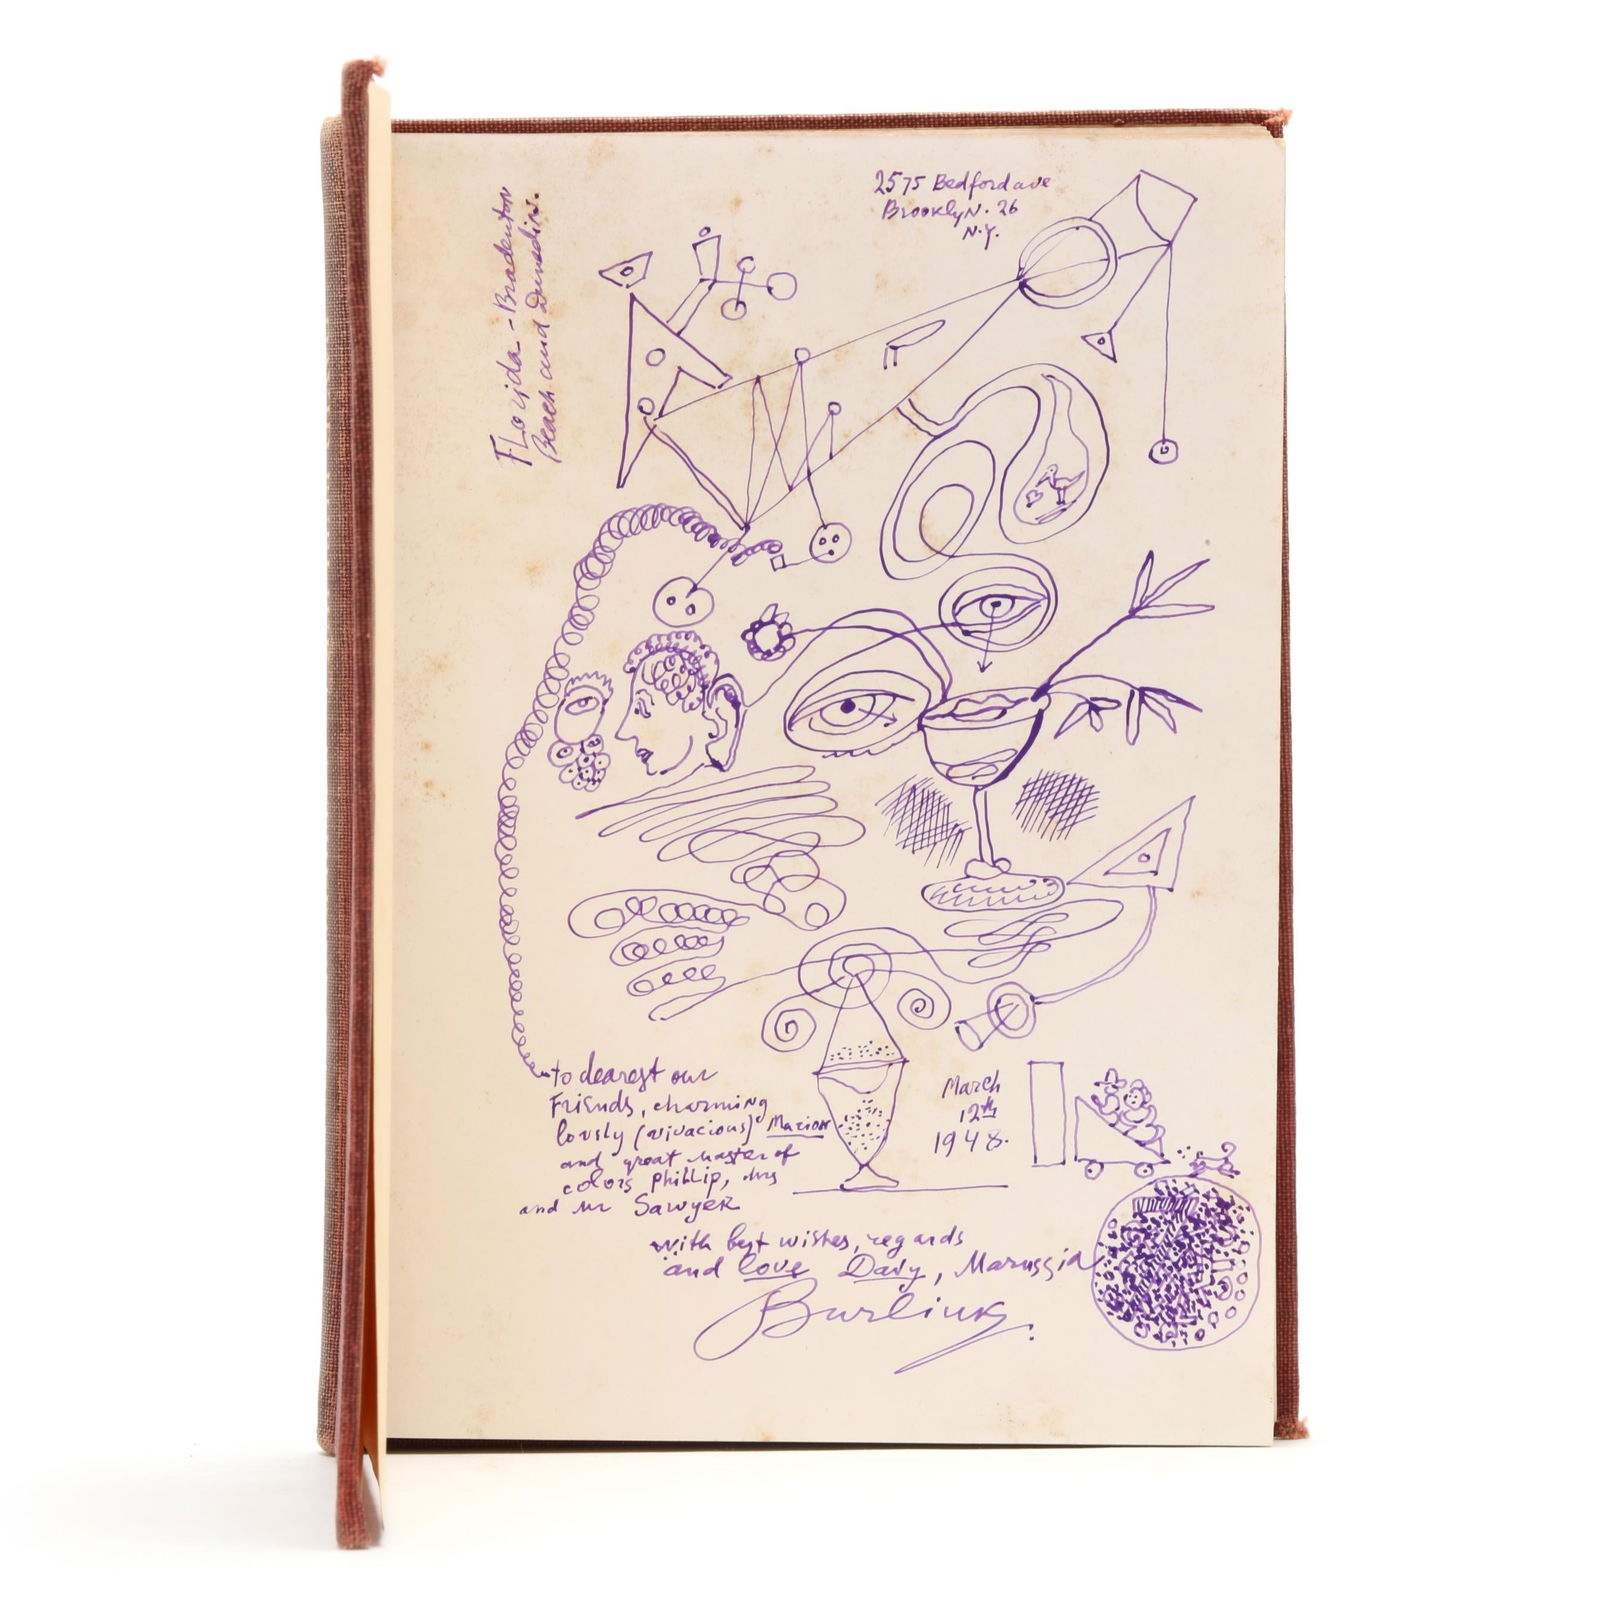 2575 Bedford ave
Brooklyn. 26
N.Y.
Florida - Bradenton
Beach and Dunedin.
to dearest our
Friends, charming
lovely (vivacious) Marion
and great master of
colors Phillip, mrs
and mr Sawyer
March
12th
1948.
with best wishes, regards
and love Davy, Marussia
Burliuk.